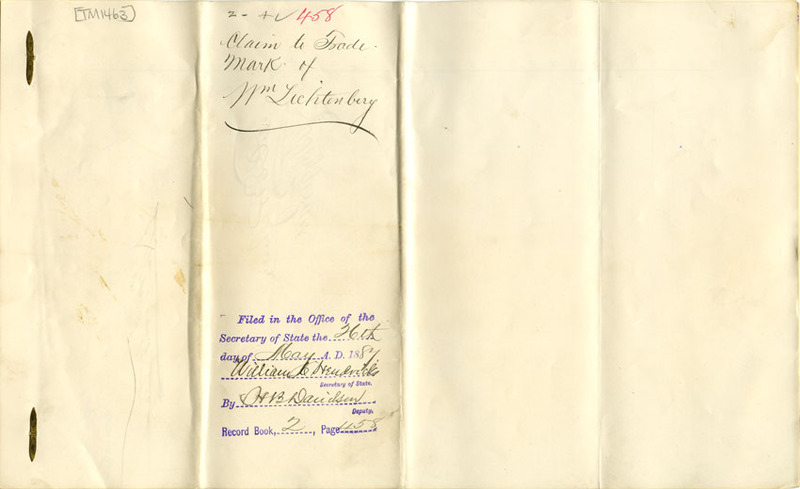 [TM1463]
2 - 458
Claim to Trade
Mark of
Wm Lichtenberg
Filed in the Office of the
Secretary of State the 26th
day of May A. D. 1887
William C Hendricks
Secretary of State.
By H B Davidson
Deputy.
Record Book, 2, Page 458